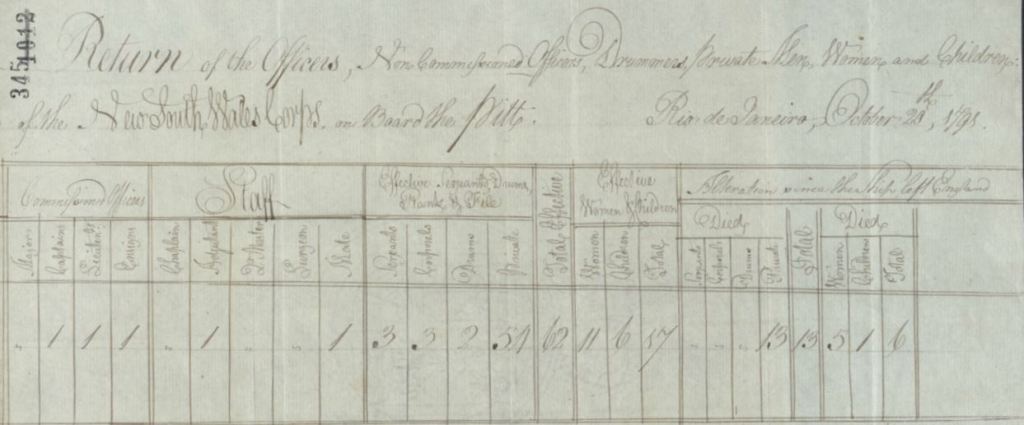 345 1012
Return of the Officers, Non Commissioned Officers, Drummers, private Men, Women, and Children,
of the New South Wales Corps. on Board the Pitt. Rio de Janeiro, October 23th, 1791.
Commissioned Officers Staff Effective Serjeants, Drums, Rank & File Total Effective Effective Women & Children Alteration since the Ship left England
Died Total Died
Majors Captain Lieuten.t Ensign Chaplain Adjutant Q.r Master Surgeon Mate Serjeants Corporals Drums Private Women Children Total Serjeants Corporals Drums Private Women Children Total
" 1 1 1 " 1 " " 1 3 3 2 54 62 11 6 17 " " " 13 13 5 1 6